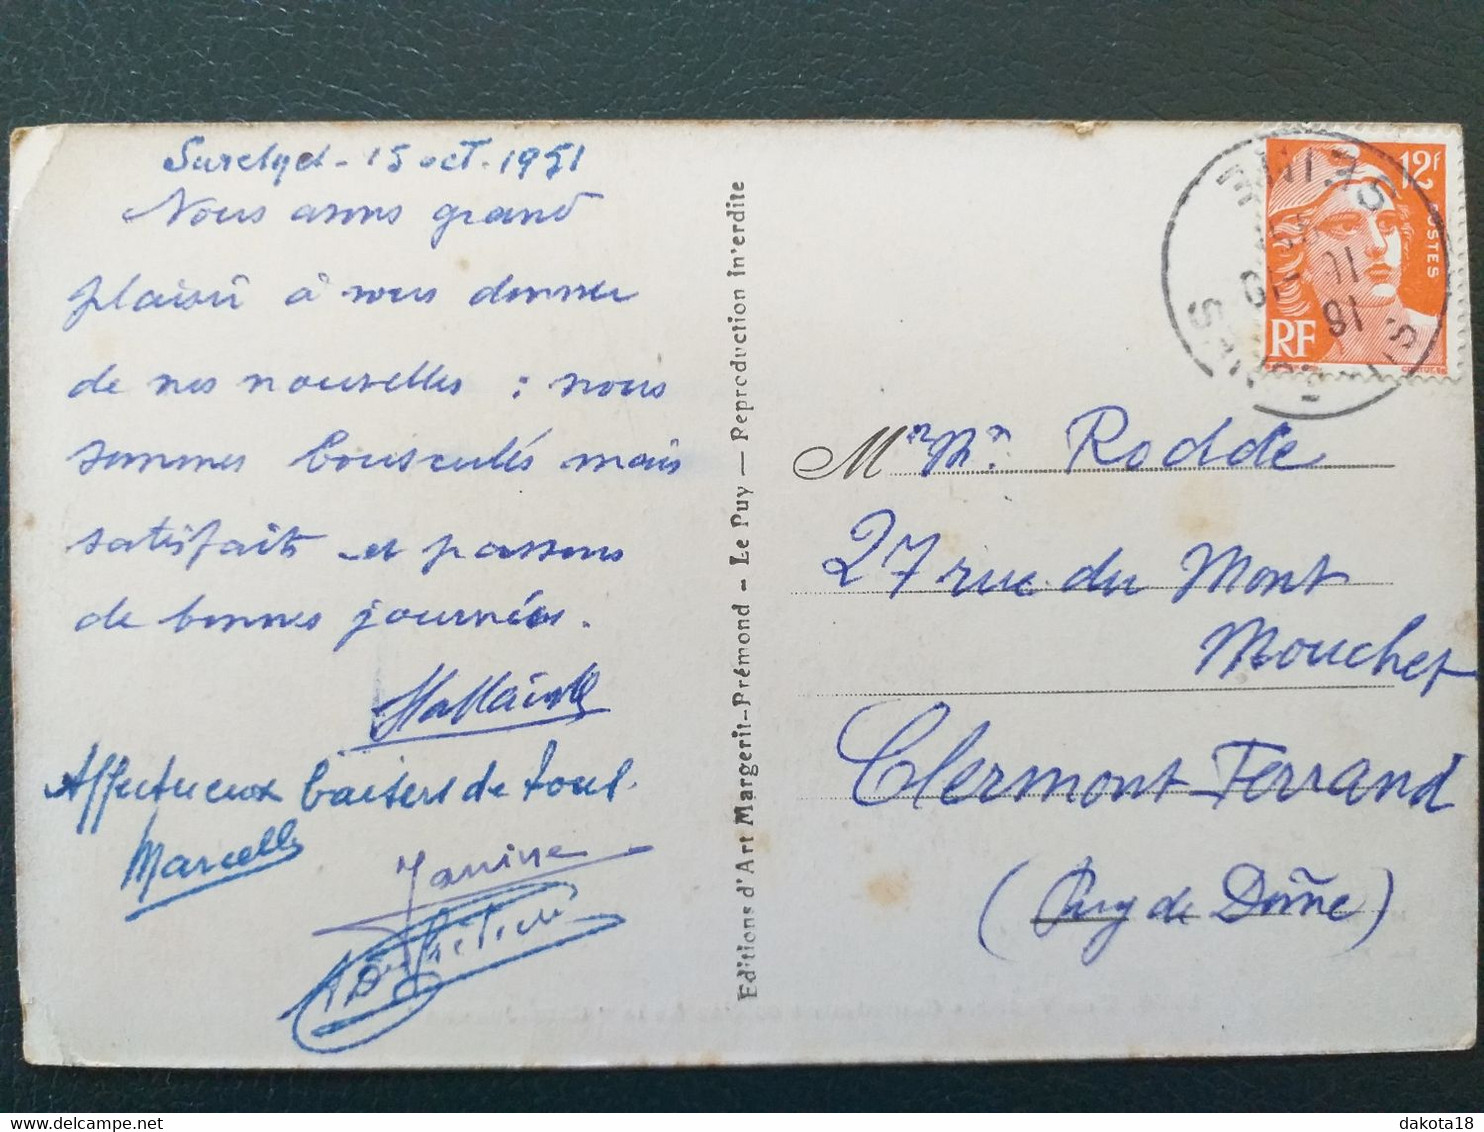 15 oct. 1951
Nous avons grand
plaisir à vous donner
de nos nouvelles : nous
sommes bousculés mais
satisfaits et passons
de bonnes journées.
Affectueux baisers de tous.
Marcelle
Janine
Editions d'Art Margerit-Prémond - Le Puy — Reproduction in'erdite
12f
POSTES
RF
SEINE
16
Rodde
27 rue du Mont
Mouchet
Clermont-Ferrand
(Puy de Dôme)
dakota18